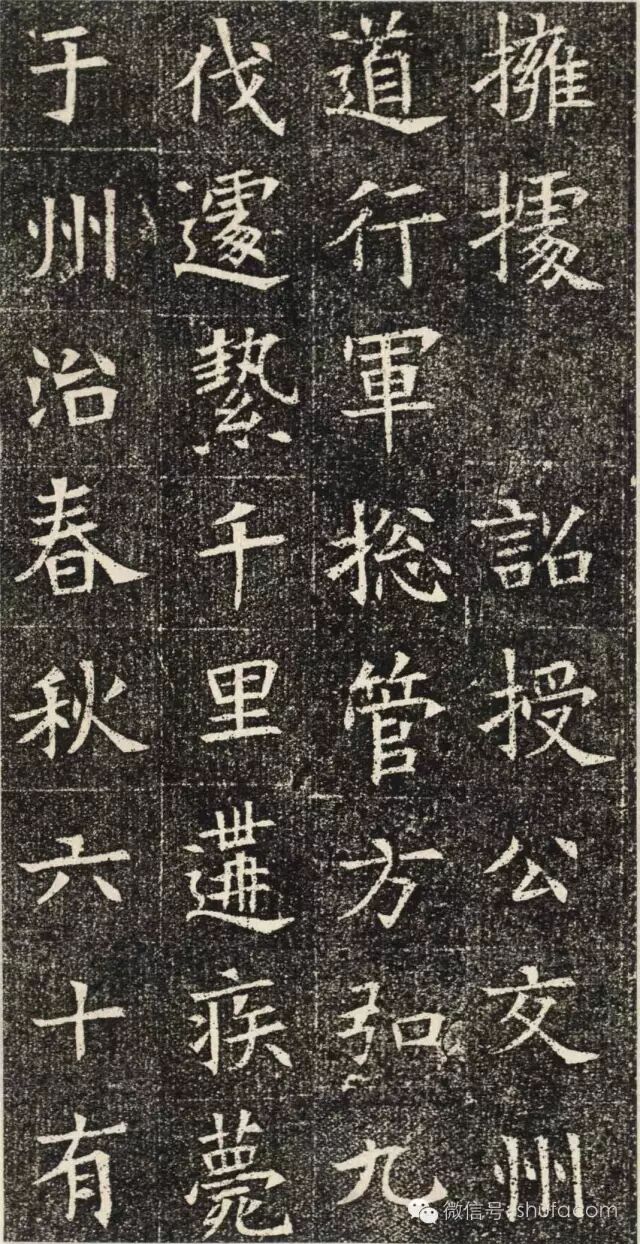 擁據 詔授公交州
道行軍揔管方弘九
伐遽縶千里遘疾薨
于州治春秋六十有
微信号: shufacom